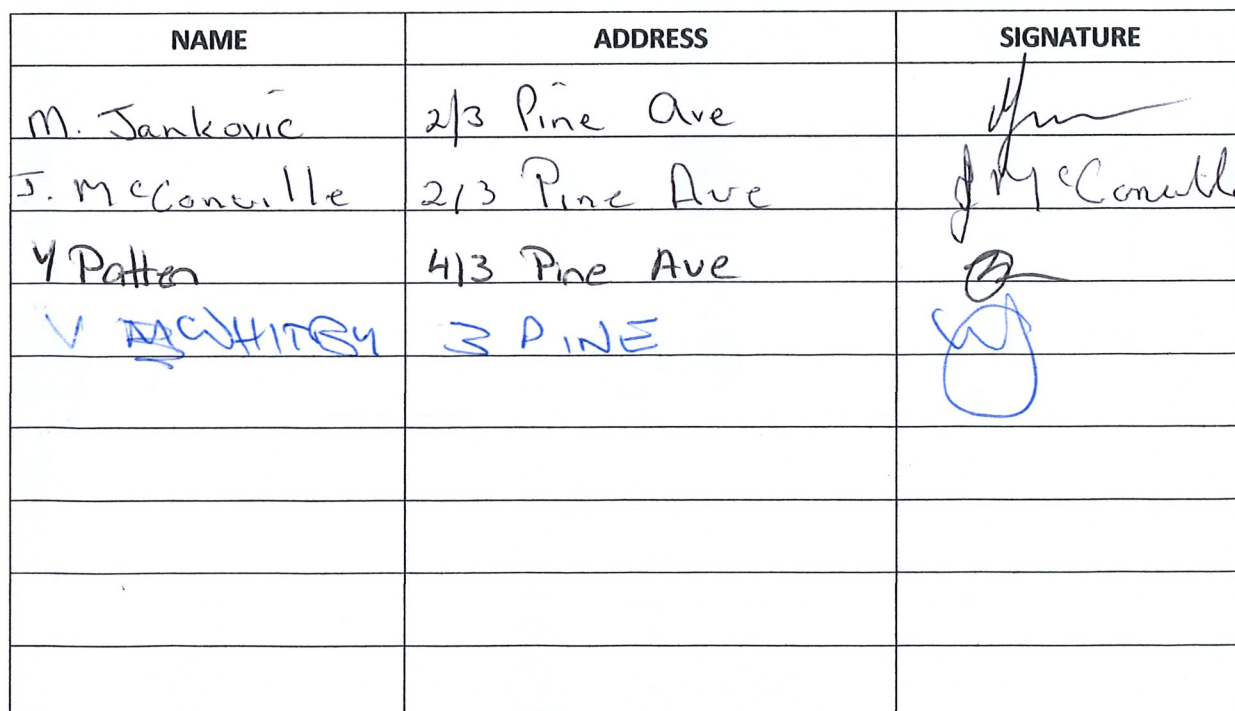 NAME ADDRESS SIGNATURE
M. Jankovic 2/3 Pine Ave
J. McConville 2/3 Pine Ave J McConville
Y Patten 4/3 Pine Ave
V McWHITBY 3 PINE